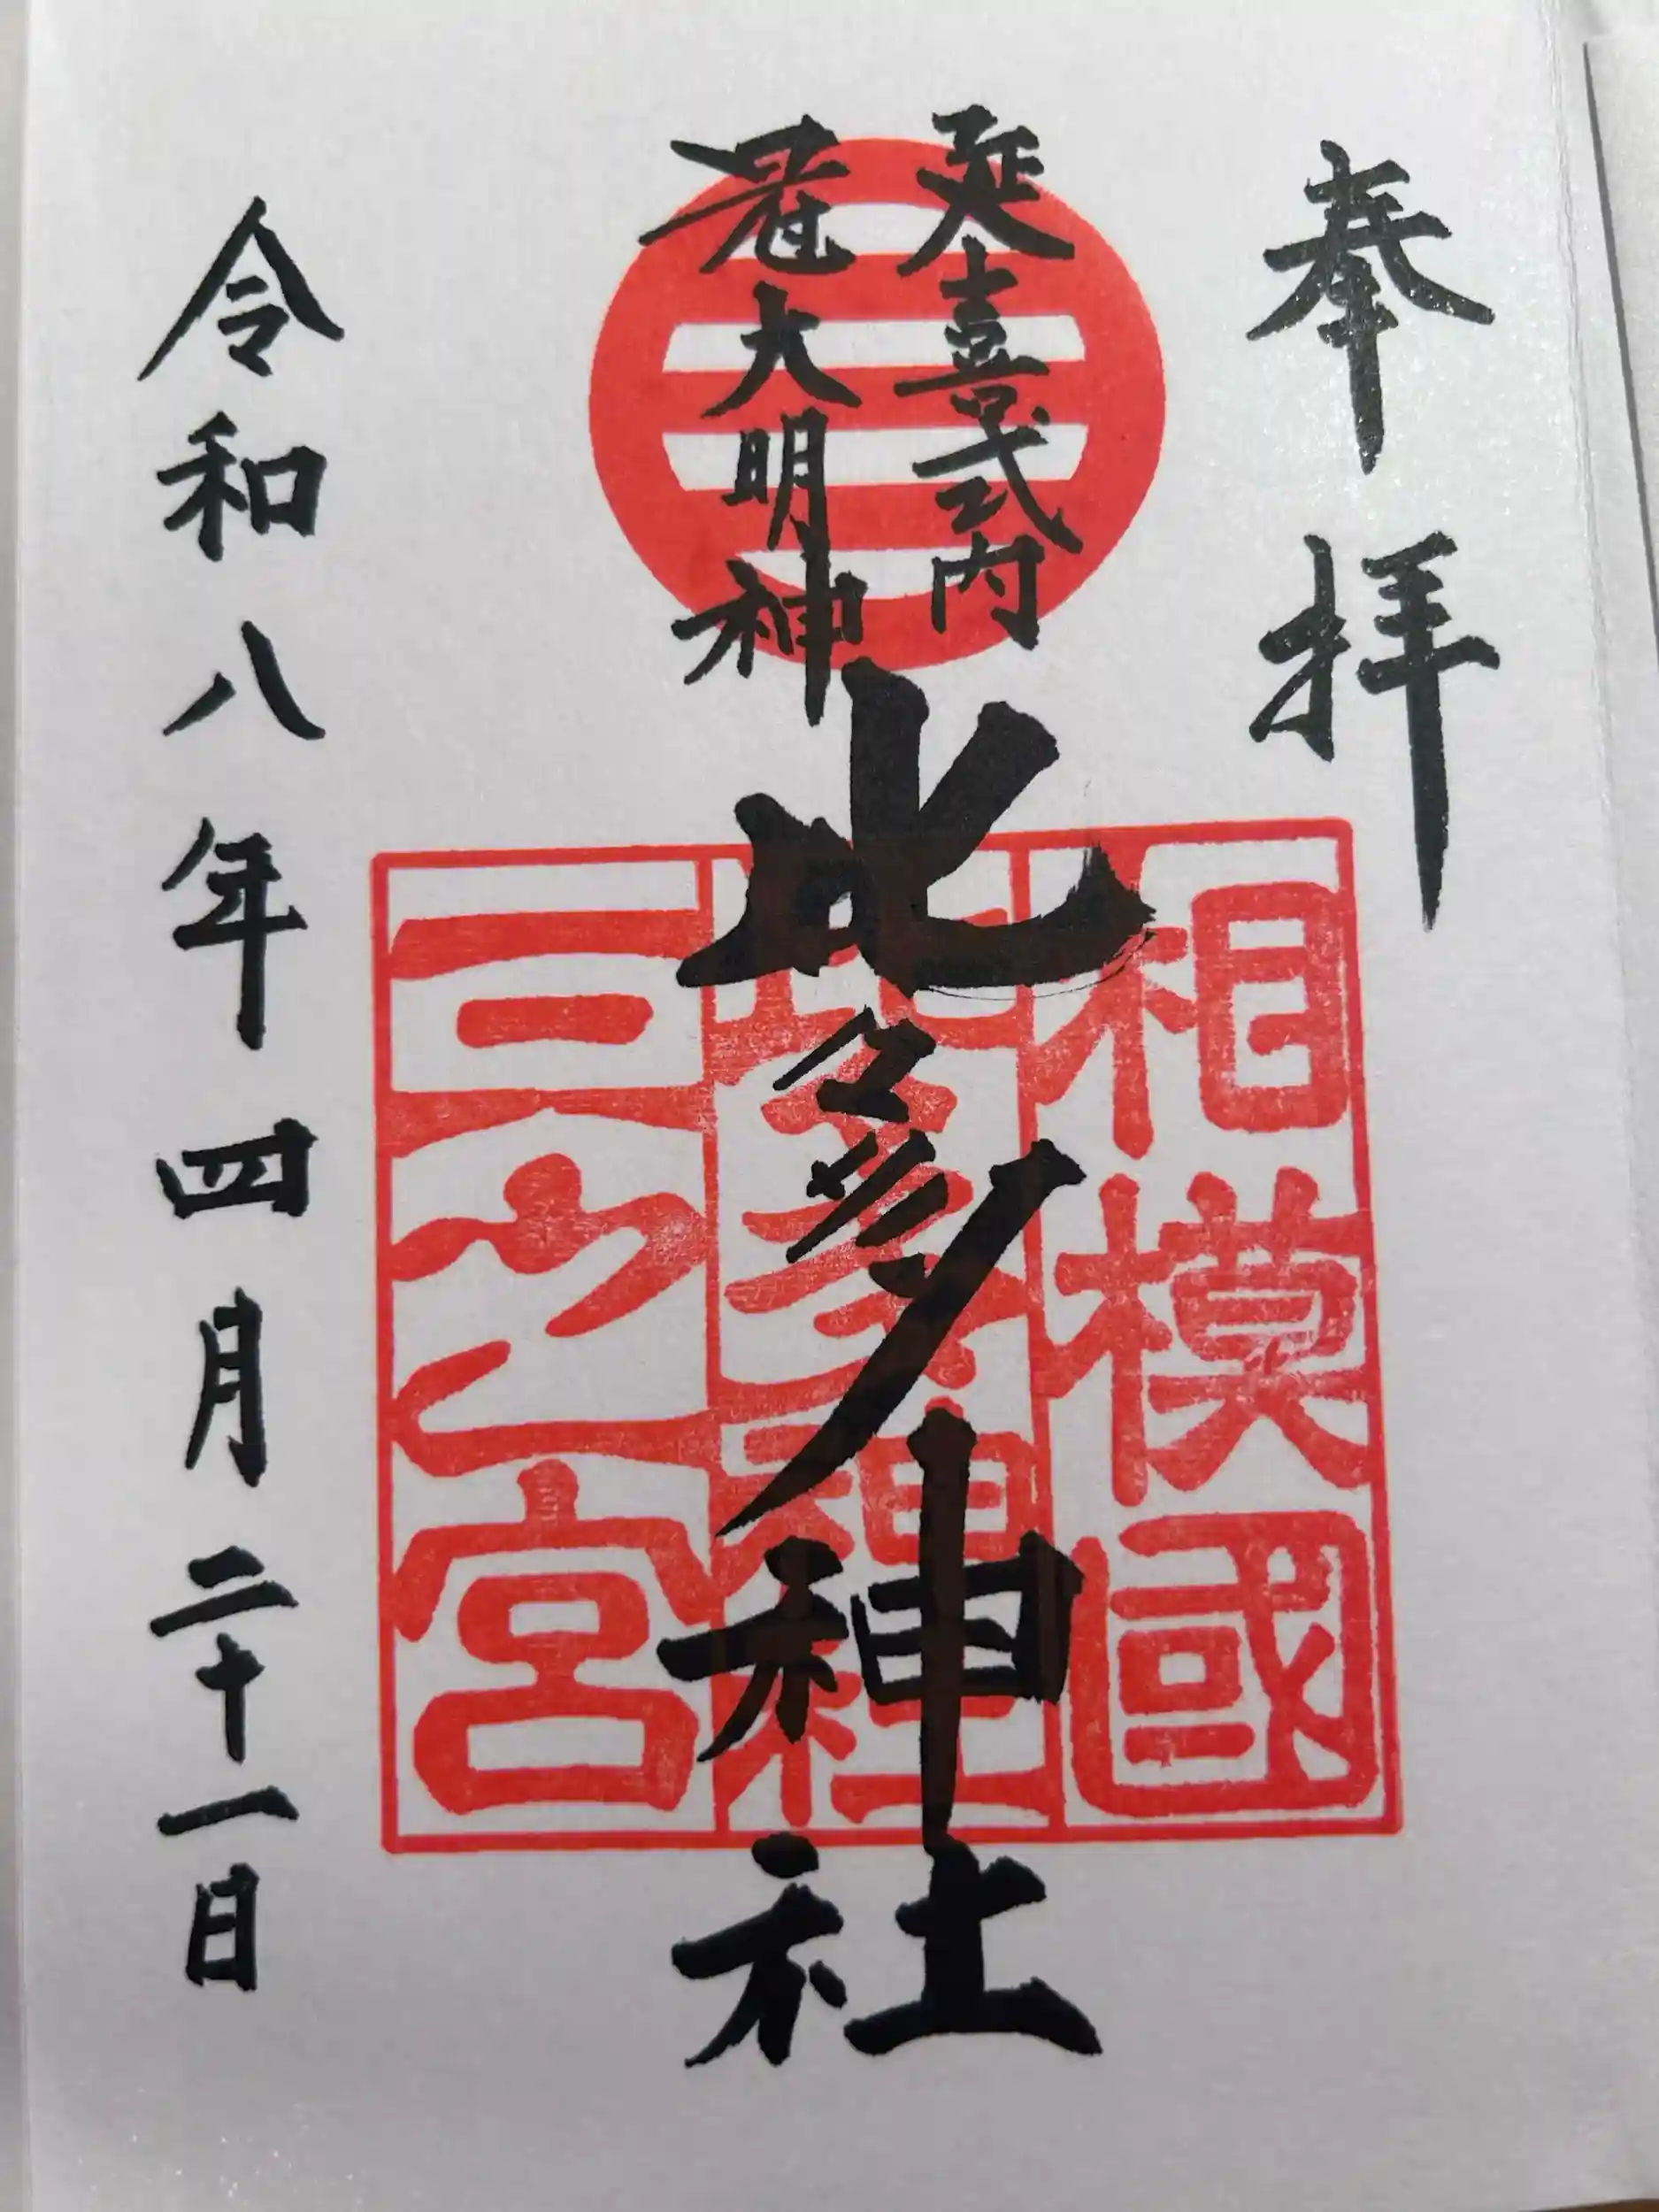 奉拝
延喜式内
冠大明神
比々多神社
相模國
三之宮
令和八年四月二十一日